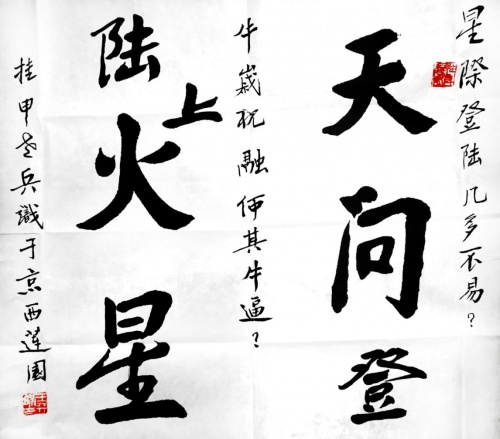 星際登陆几多不易?
天问登
牛歲祝融何其牛逼?
陆上火星
挂甲老兵識于京西蓮園